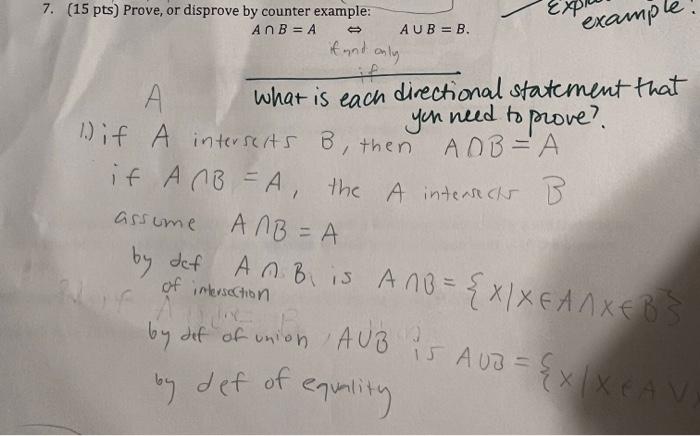 7. (15 pts) Prove, or disprove by counter example:
A ∩ B = A ⇔ A ∪ B = B.
example.
if and only
if
A
what is each directional statement that
you need to prove?
1.) if A intersects B, then A∩B = A
if A∩B = A, the A intersects B
assume A∩B = A
by def A∩B is A∩B = {x/x∈A∧x∈B}
of intersection
by def of union, A∪B is A∪B = {x/x∈A∨
by def of equality